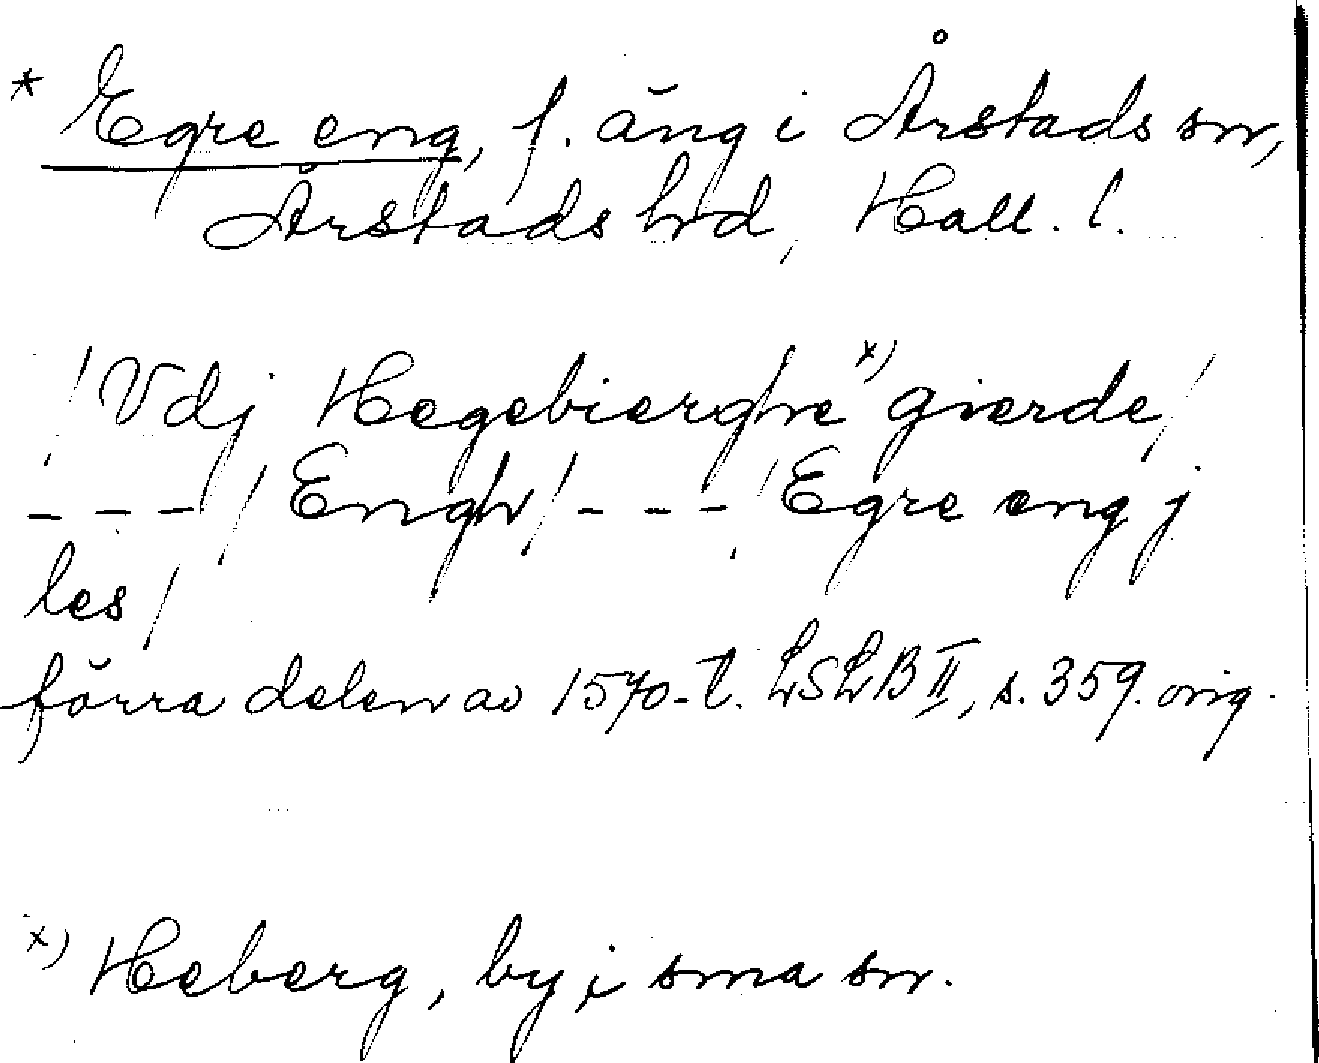 * Egre eng, f. äng i Årstads sn,
Årstads hd, Hall. l.
/Vdj Hegebierghe x) gierde/
--- / Engh / --- / Egre eng j
les /
förra delen av 1570-t. LSLB II, s. 359. orig.
x) Heberg, by i sma sn.